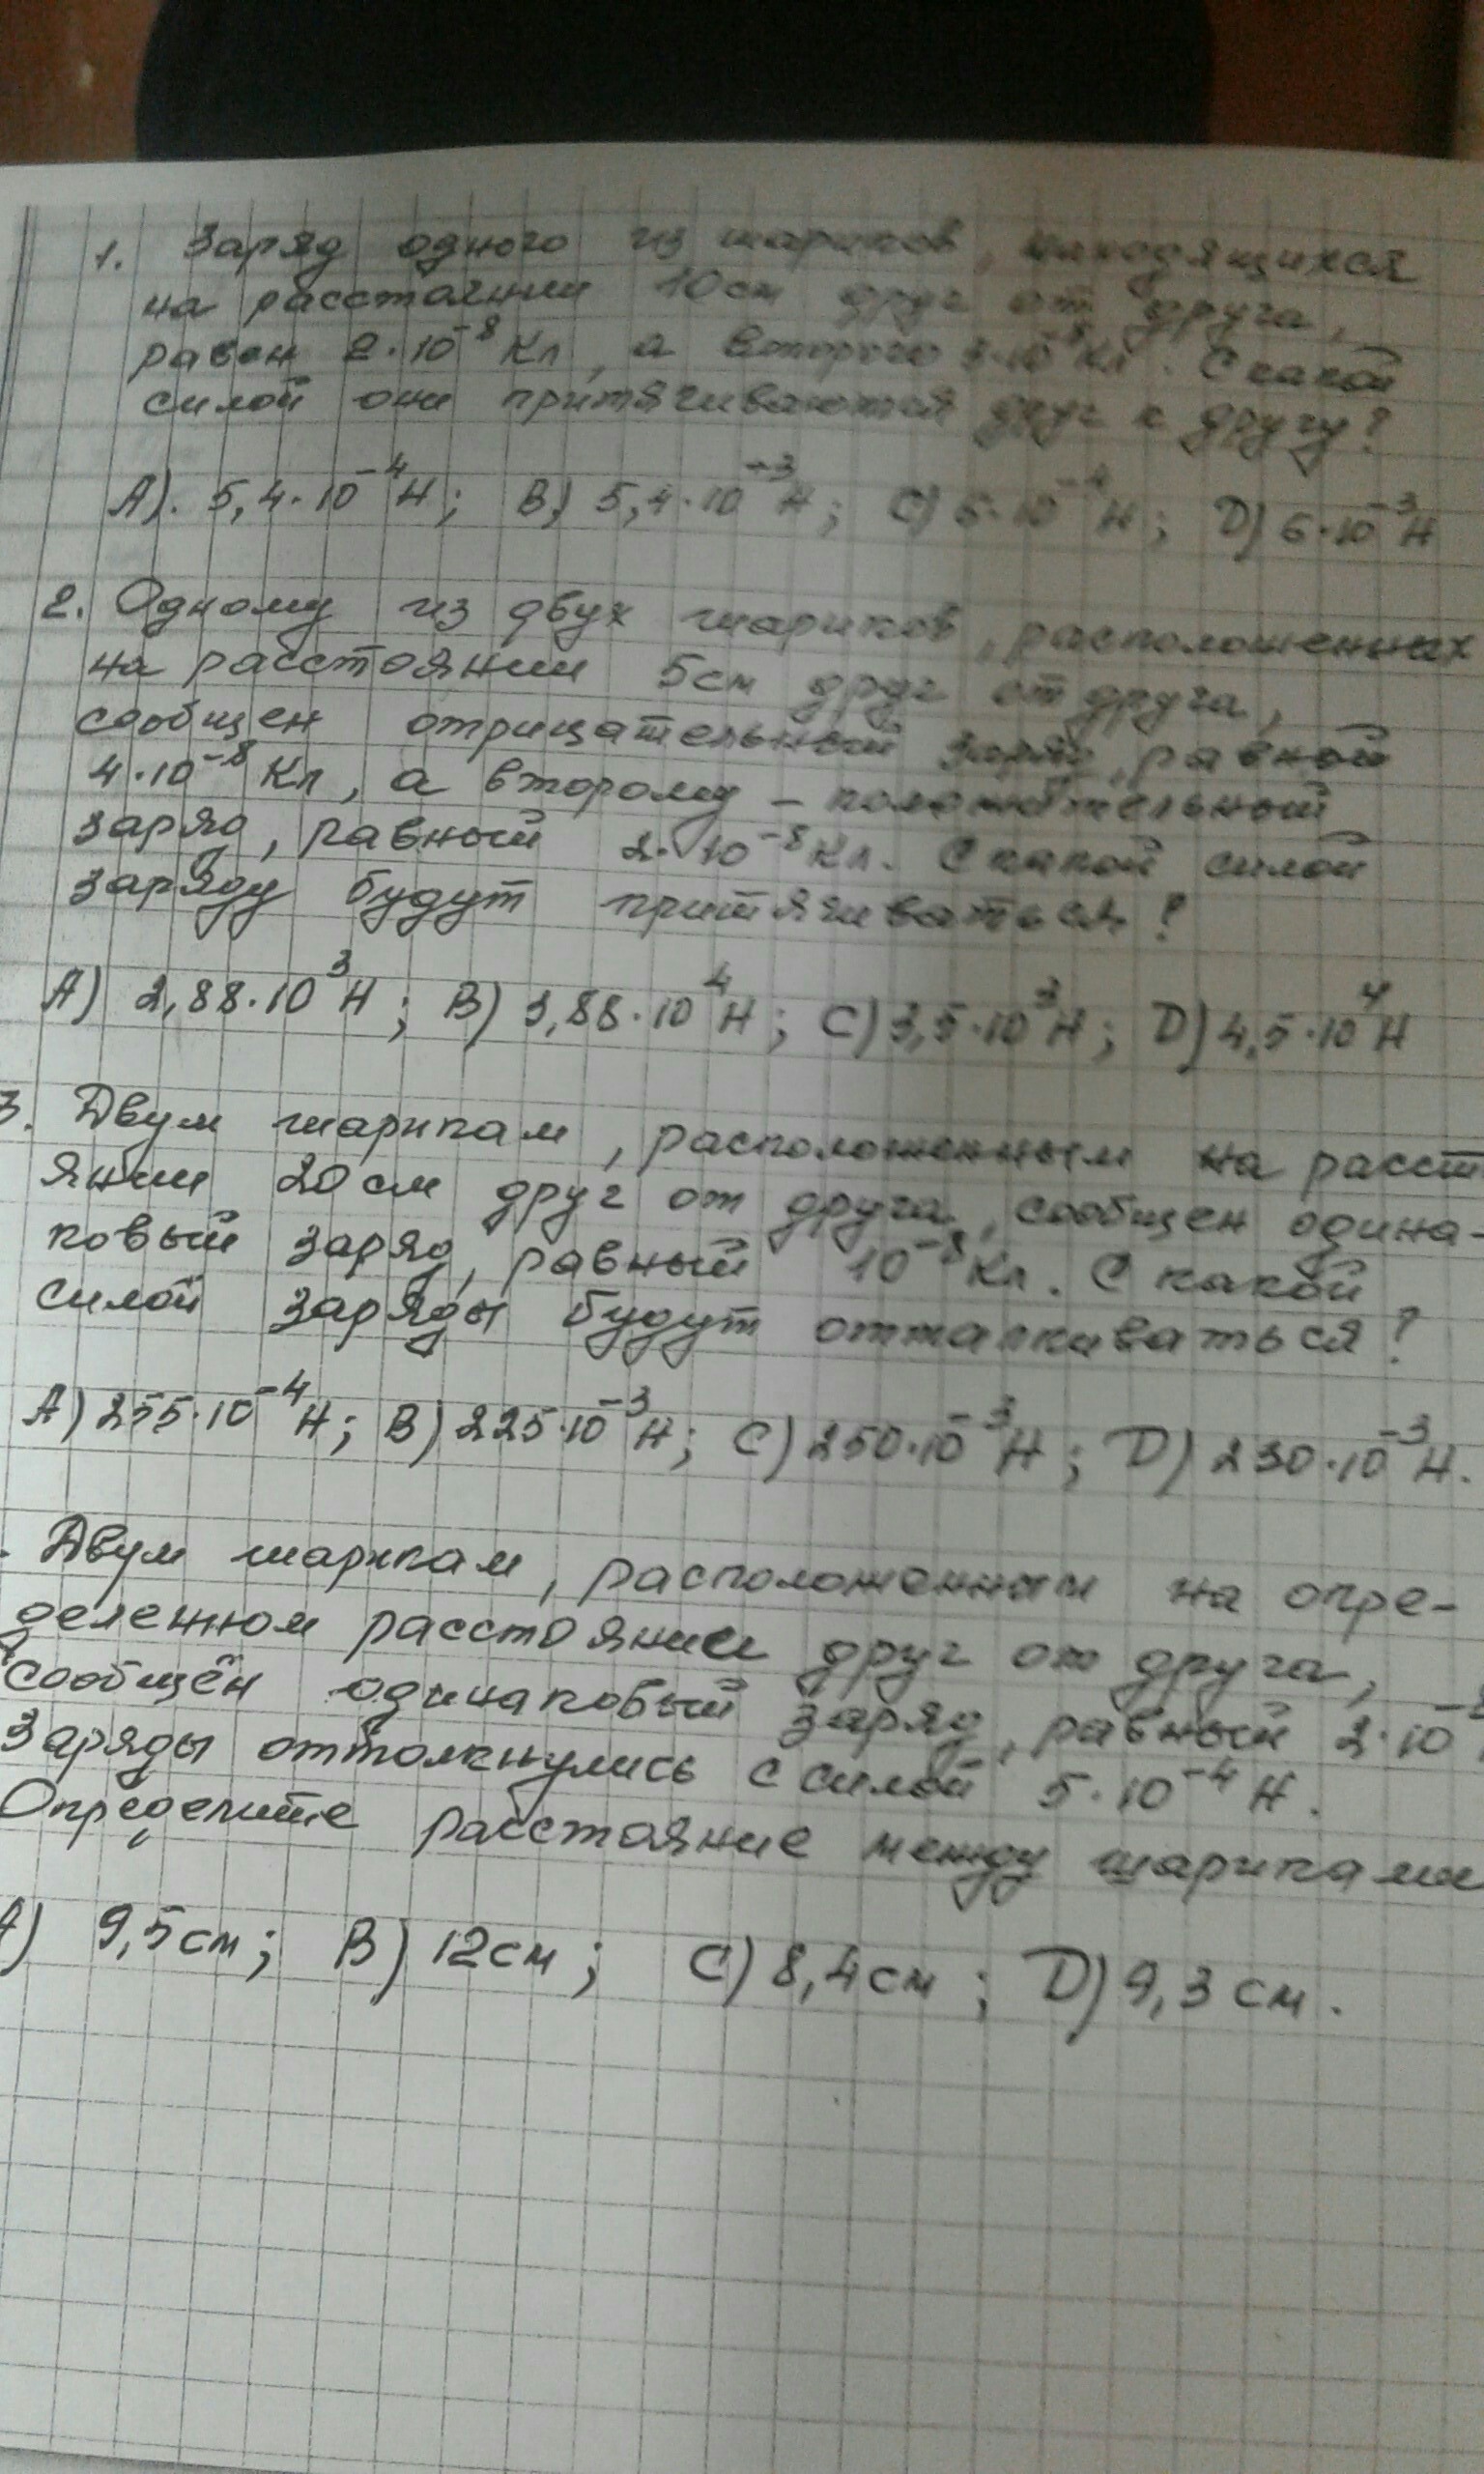 1. Заряд одного из шариков, находящихся
на расстоянии 10см друг от друга,
равен 2·10⁻⁸ Кл, а второго 3·10⁻⁸ Кл. С какой
силой они притягиваются друг к другу?
A). 5,4·10⁻⁴Н; B) 5,4·10⁻³Н; C) 5·10⁻⁴Н; D) 6·10⁻³Н
2. Одному из двух шариков, расположенных
на расстоянии 5см друг от друга,
сообщен отрицательный заряд, равной
4·10⁻⁸ Кл, а второму – положительный
заряд, равный 2·10⁻⁸ Кл. С какой силой
заряду будут притягиваться?
A) 2,88·10³Н; B) 3,88·10⁴Н; C) 3,5·10³Н; D) 4,5·10⁴Н
3. Двум шарикам, расположенным на расст
янии 20см друг от друга, сообщен одина-
ковый заряд, равный 10⁻⁸ Кл. С какой
силой заряды будут отталкиваться?
A) 255·10⁻⁴Н; B) 225·10⁻³Н; C) 250·10⁻³Н; D) 230·10⁻³Н.
. Двум шарикам, расположенным на опре-
деленном расстоянии друг от друга,
сообщён одинаковый заряд, равный 2·10⁻⁸
Заряды оттолкнулись с силой 5·10⁻⁴ Н.
Определите расстояние между шариками
A) 9,5см; B) 12см; C) 8,4см; D) 9,3см.